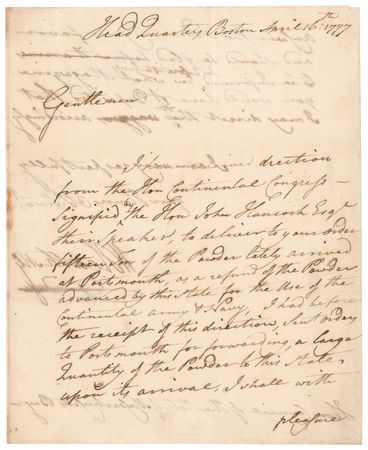 Head Quarters Boston April 16th. 1777
Gentlemen
I have received direction
from the Hon Continental Congress
Signified by the Hon John Hancock Esqr
their Speaker to deliver to your order
fifteen of the Powder lately arrived
at Portsmouth, as a refund of the Powder
advanced by this State for the Use of the
Continental army & Navy, I had before
the receipt of this direction, Sent orders
to Portsmouth for forwarding, a large
Quantity of the Powder to this State
upon its arrival, I shall with
pleasure